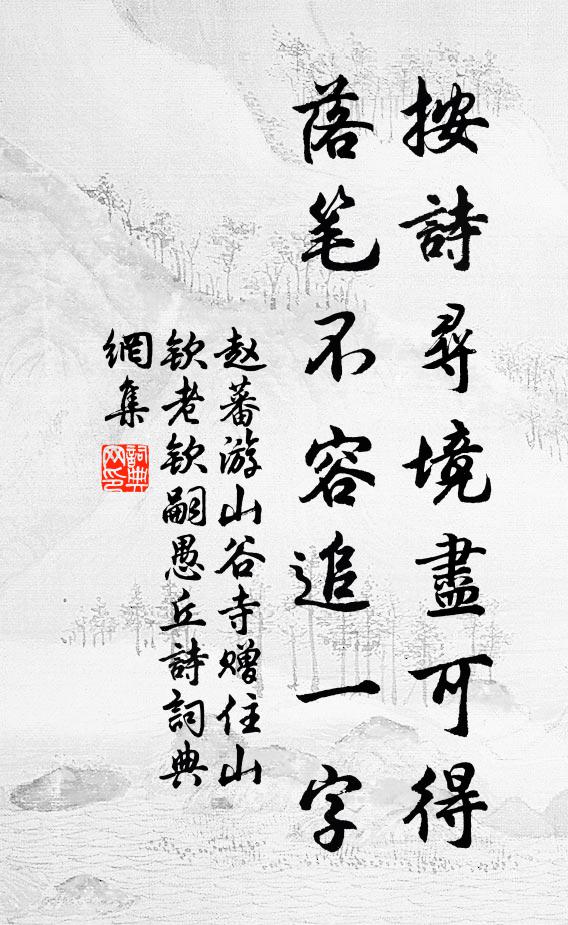 按詩尋境盡可得
落笔不容追一字
赵蕃游山谷寺赠住山
钦老钦嗣愚丘詩詞典
網集
詞典
网印